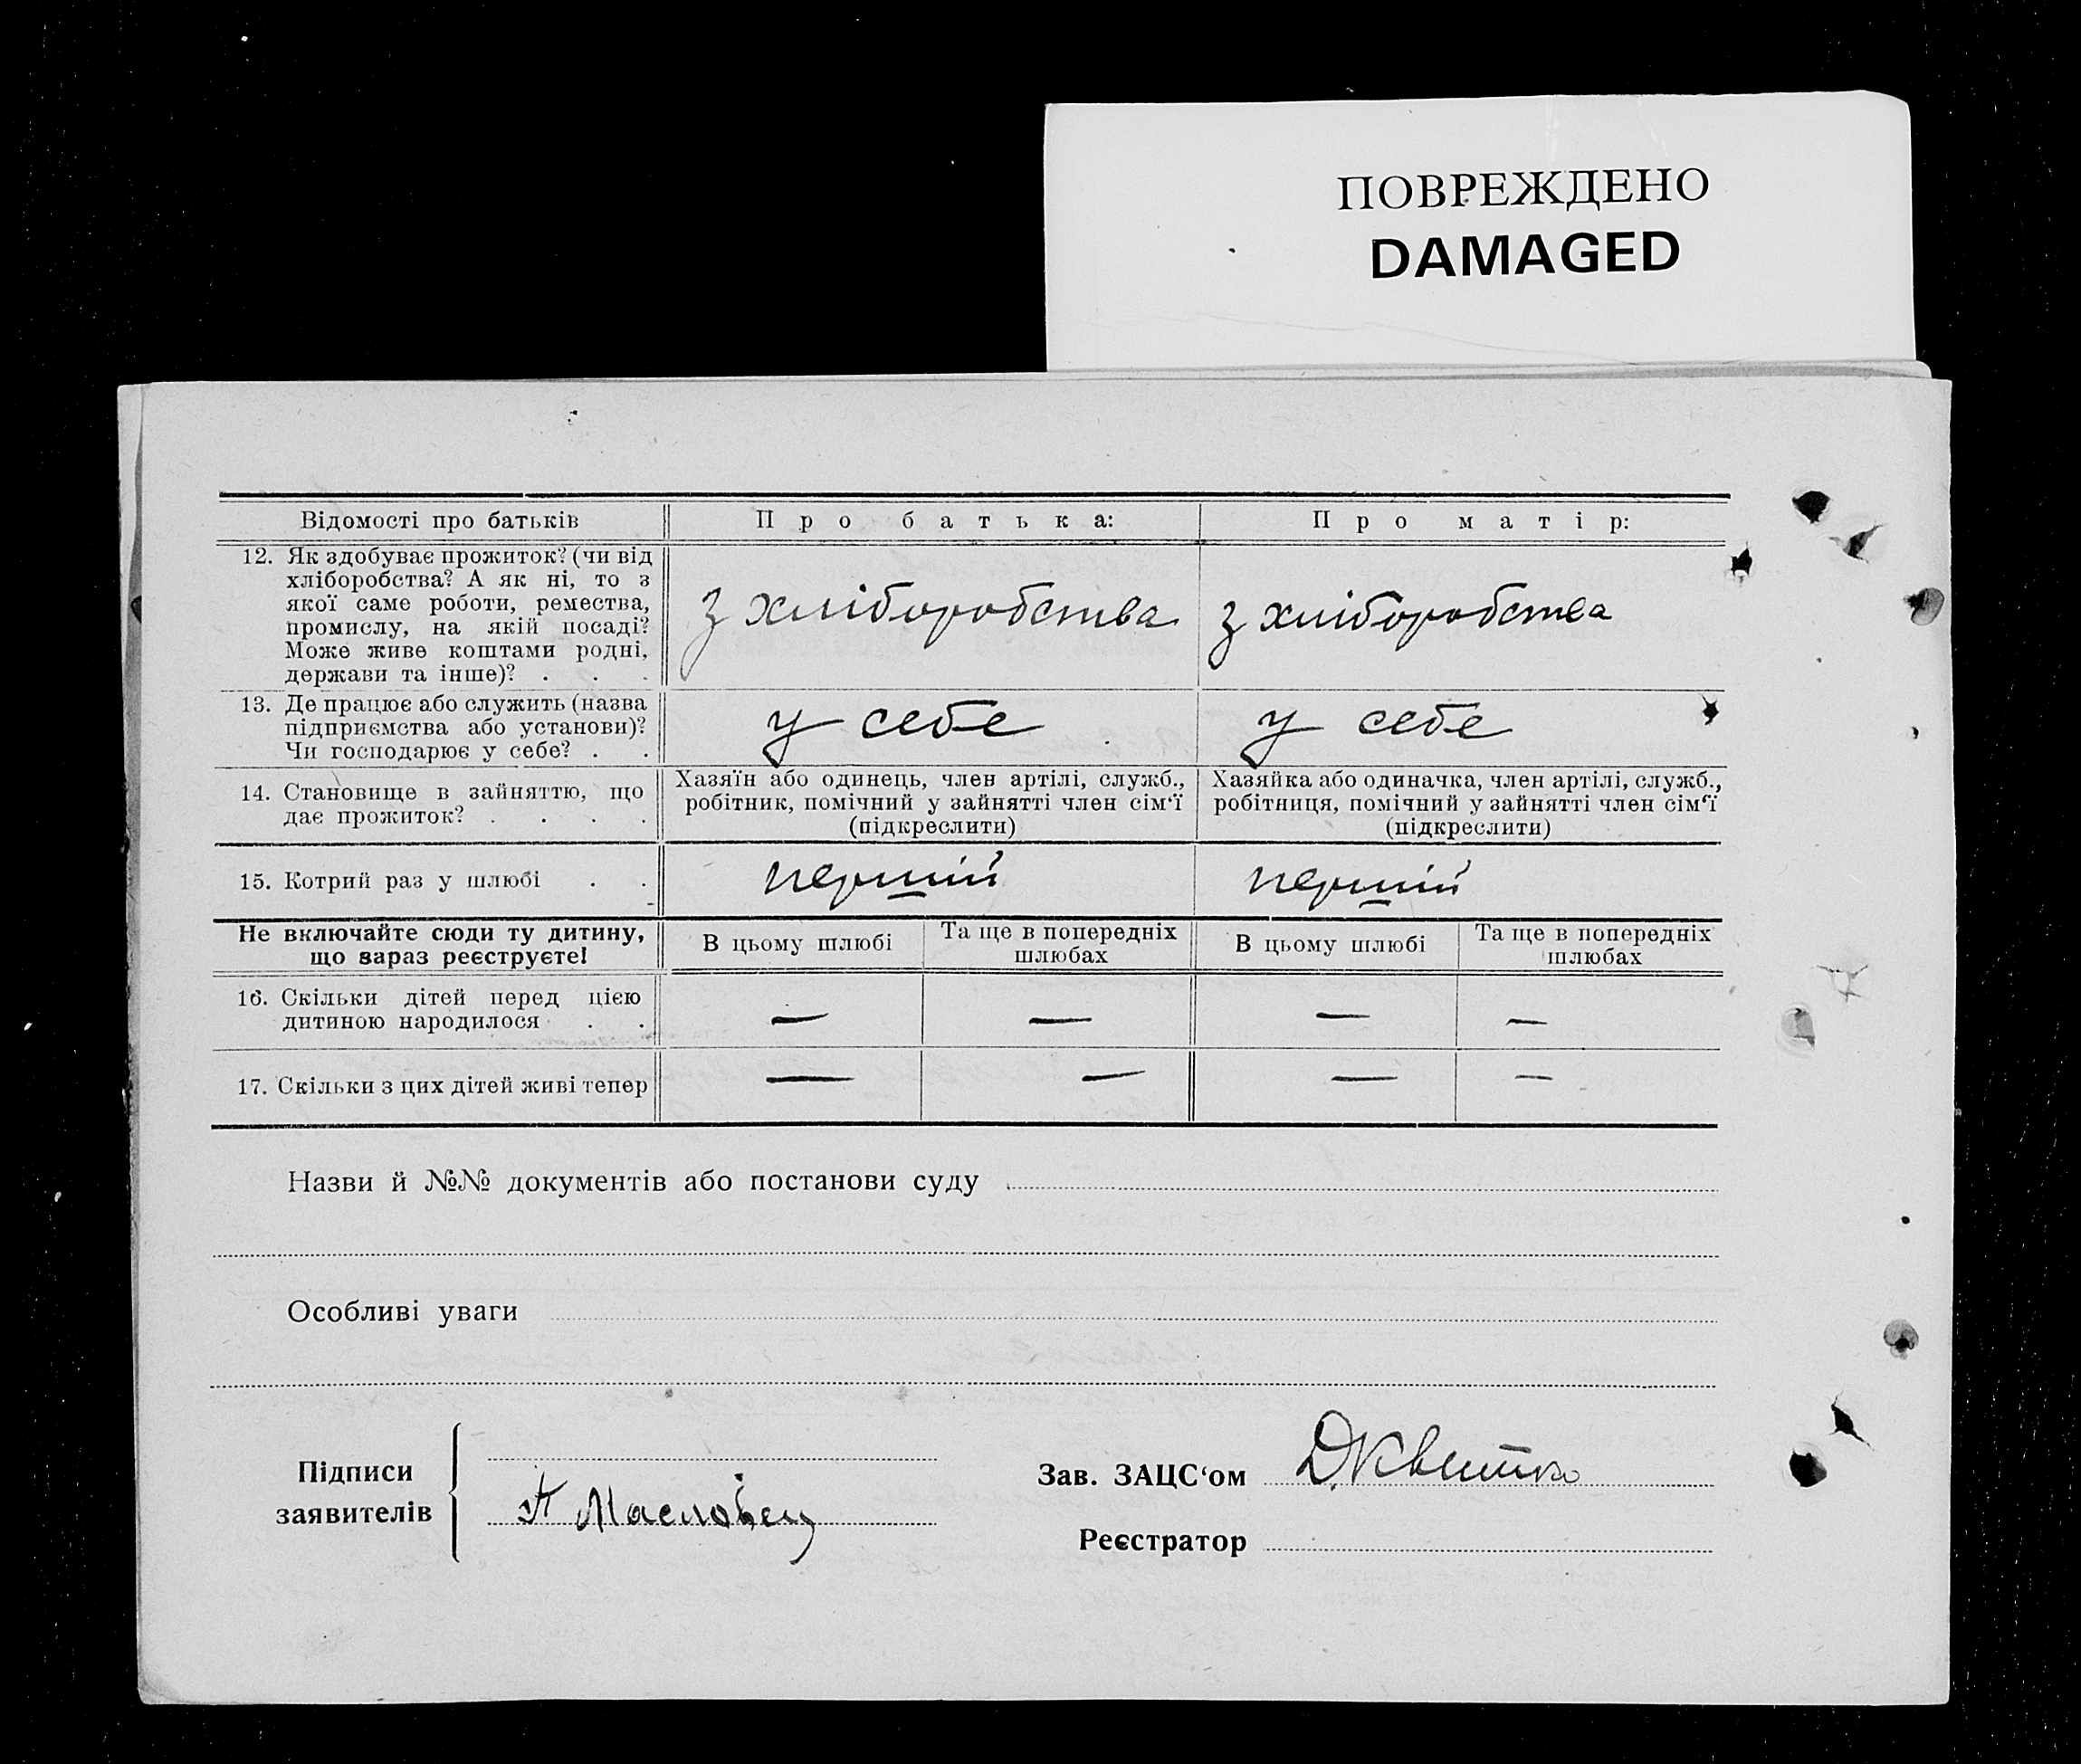 ПОВРЕЖДЕНО
DAMAGED
Відомості про батьків
Про батька:
Про матір:
12. Як здобуває прожиток? (чи від
хліборобства? А як ні, то з
якої саме роботи, ремества,
промислу, на якій посаді?
Може живе коштами родні,
держави та інше)? . . .
з хліборобства
з хліборобства
13. Де працює або служить (назва
підприємства або установи)?
Чи господарює у себе? . .
у себе
у себе
14. Становище в зайняттю, що
дає прожиток? . . . .
Хазяїн або одинець, член артілі, служб.,
робітник, помічний у зайнятті член сім‘ї
(підкреслити)
Хазяйка або одиначка, член артілі, служб.,
робітниця, помічний у зайнятті член сім‘ї
(підкреслити)
15. Котрий раз у шлюбі . .
перший
перший
Не включайте сюди ту дитину,
що зараз реєструєте!
В цьому шлюбі
Та ще в попередніх
шлюбах
В цьому шлюбі
Та ще в попередніх
шлюбах
16. Скільки дітей перед цією
дитиною народилося . .
— — — —
17. Скільки з цих дітей живі тепер
— — — —
Назви й №№ документів або постанови суду
Особливі уваги
Підписи
заявителів
Зав. ЗАЦС‘ом
Реєстратор